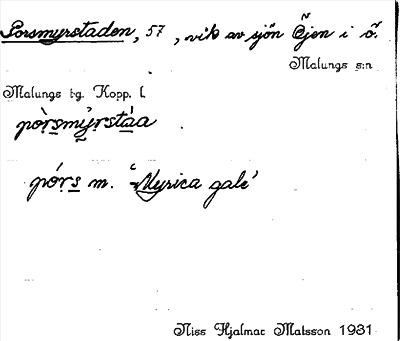 Porsmyrstaden, 57, vik av sjön Öjen i ö.
Malungs s:n
Malungs tg. Kopp. l.
pòrsmỳrstáa
pórs m. 'Myrica gale'
Niss Hjalmar Matsson 1931